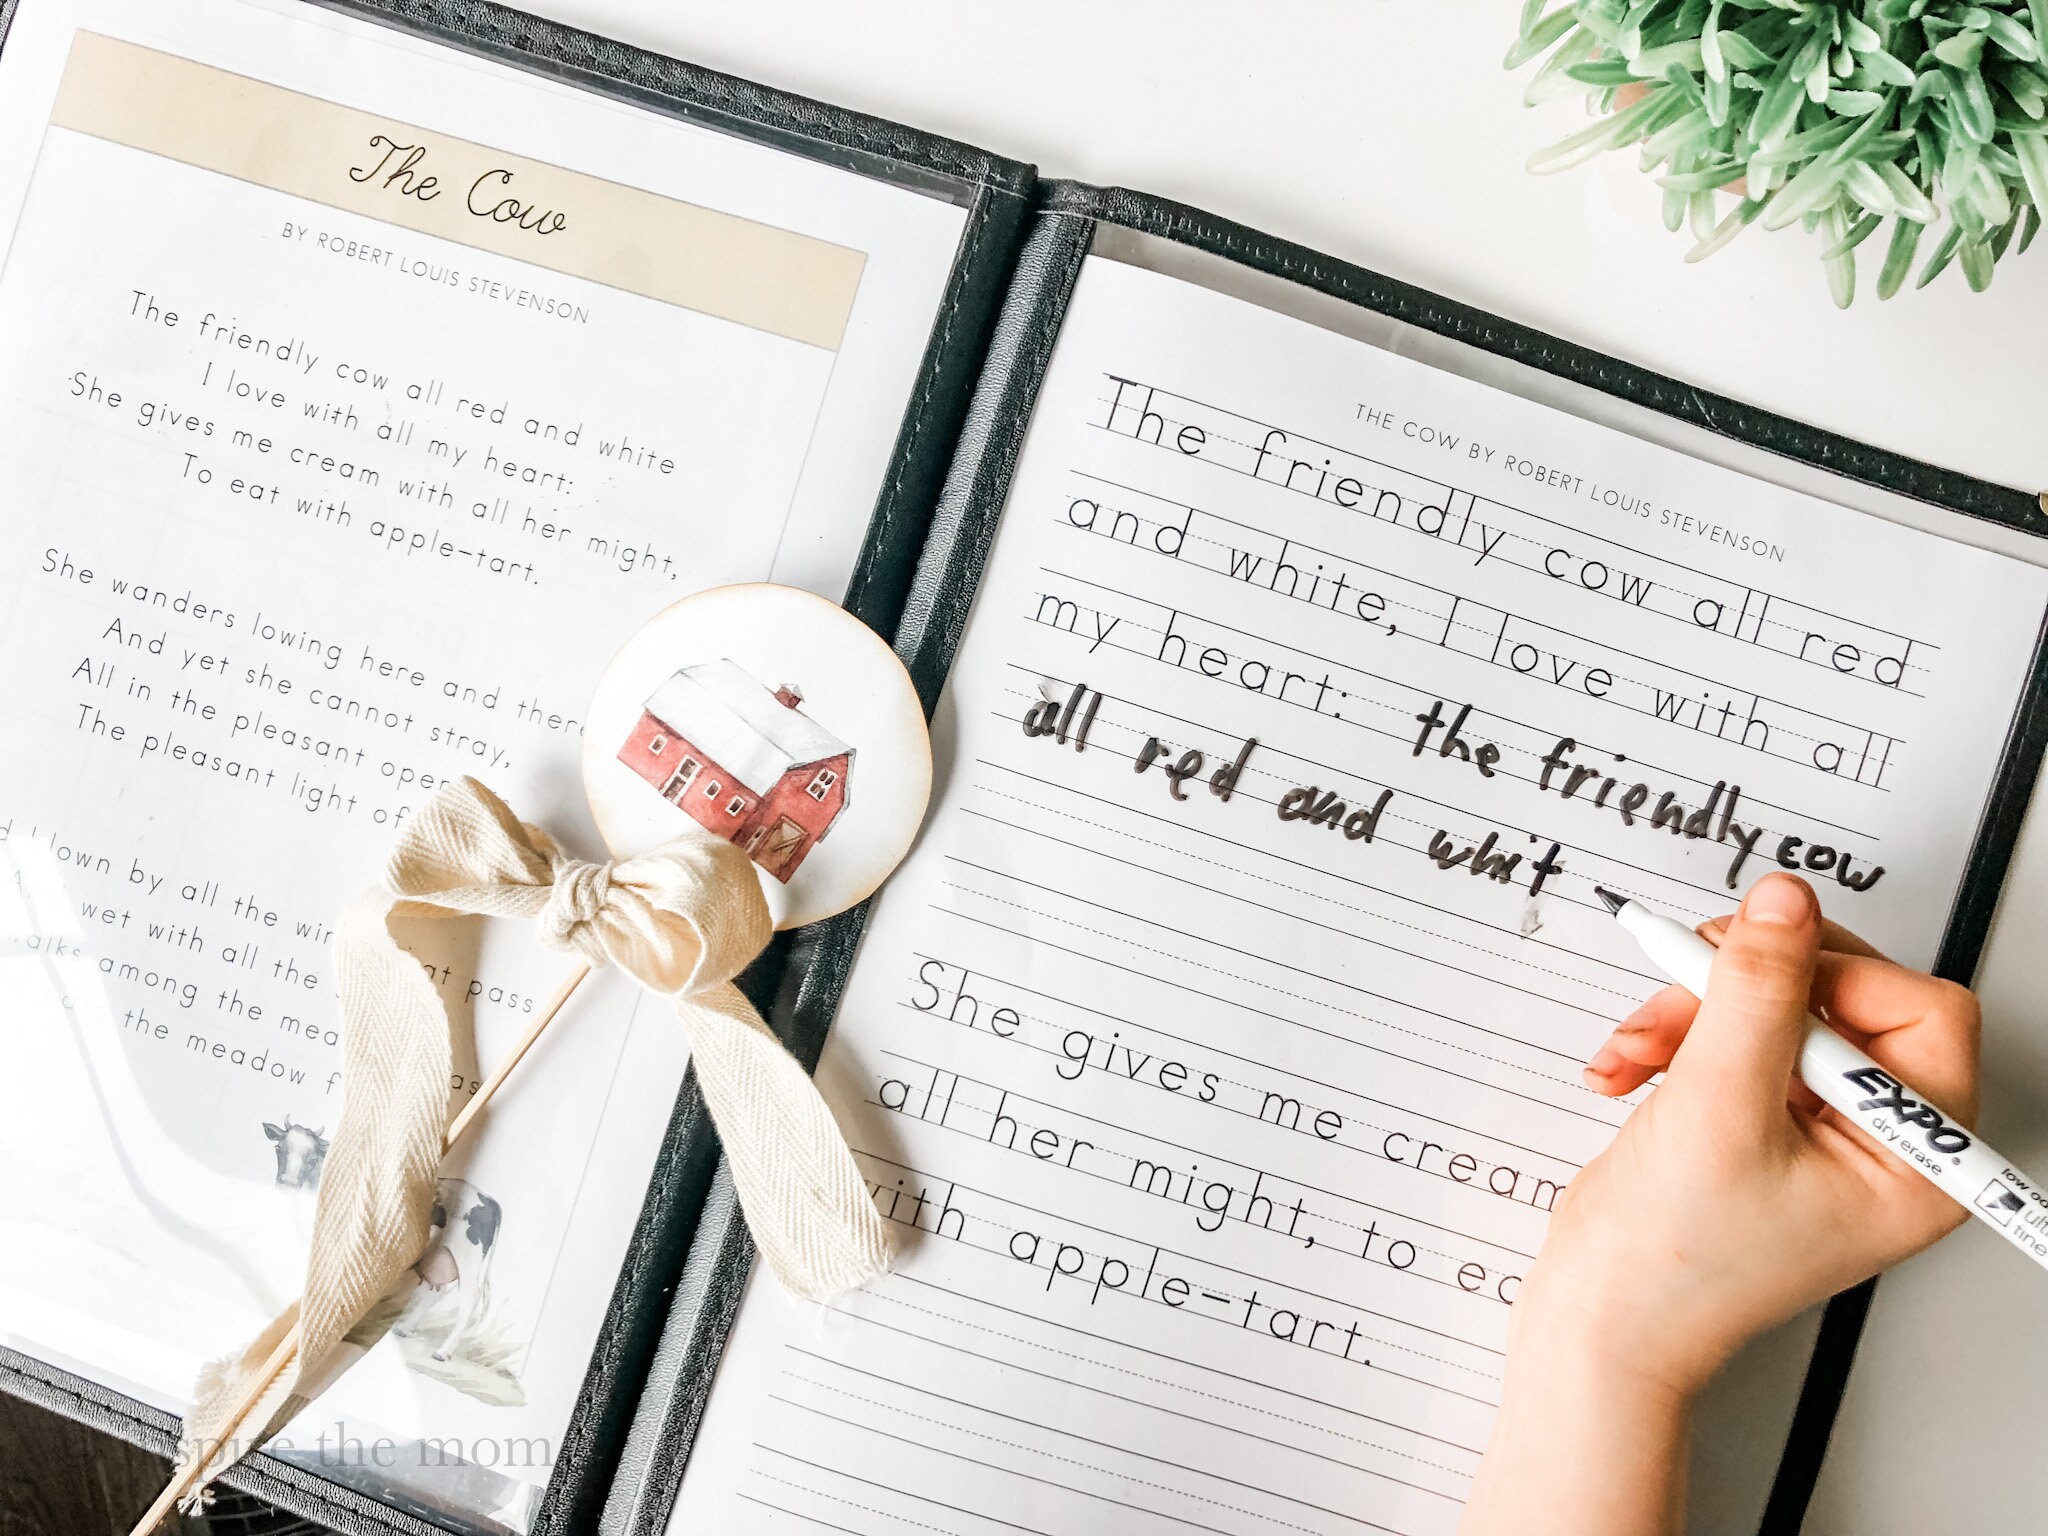 The Cow
BY ROBERT LOUIS STEVENSON
The friendly cow all red and white
I love with all my heart:
She gives me cream with all her might,
To eat with apple-tart.
She wanders lowing here and there
And yet she cannot stray,
All in the pleasant open
The pleasant light of
lown by all the win
wet with all the at pass
walks among the mea
the meadow f
THE COW BY ROBERT LOUIS STEVENSON
The friendly cow all red
and white, I love with all
my heart: the friendly cow
all red and whit
She gives me cream
all her might, to ea
with apple-tart.
EXPO
dry erase
low
ult
fine
inspire the mom